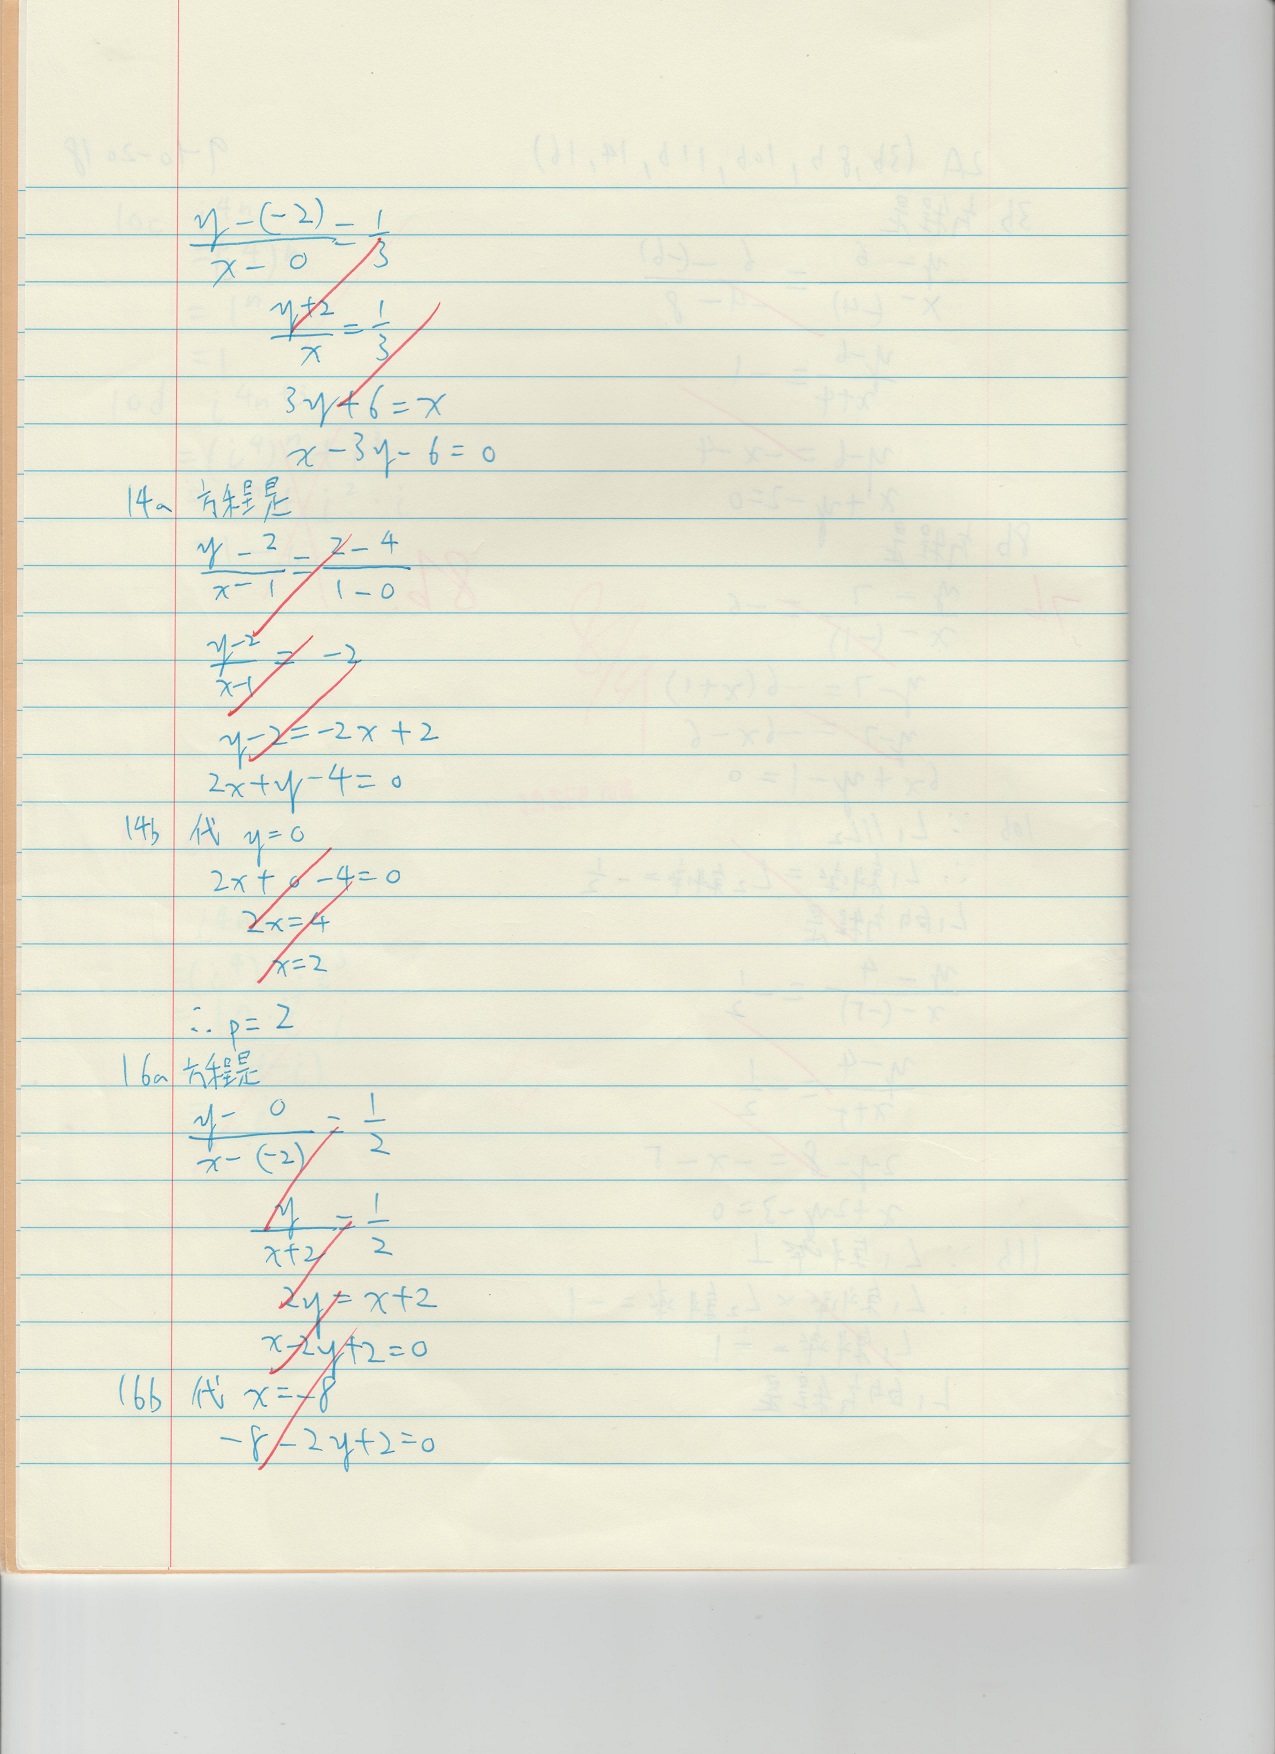 y-(-2)/x-0 = 1/3
y+2/x = 1/3
3y+6=x
x-3y-6=0
14a 方程是
y-2/x-1 = 2-4/1-0
y-2/x-1 = -2
y-2=-2x+2
2x+y-4=0
14b 代 y=0
2x+0-4=0
2x=4
x=2
∴ p=2
16a 方程是
y-0/x-(-2) = 1/2
y/x+2 = 1/2
2y=x+2
x-2y+2=0
16b 代 x=-8
-8-2y+2=0